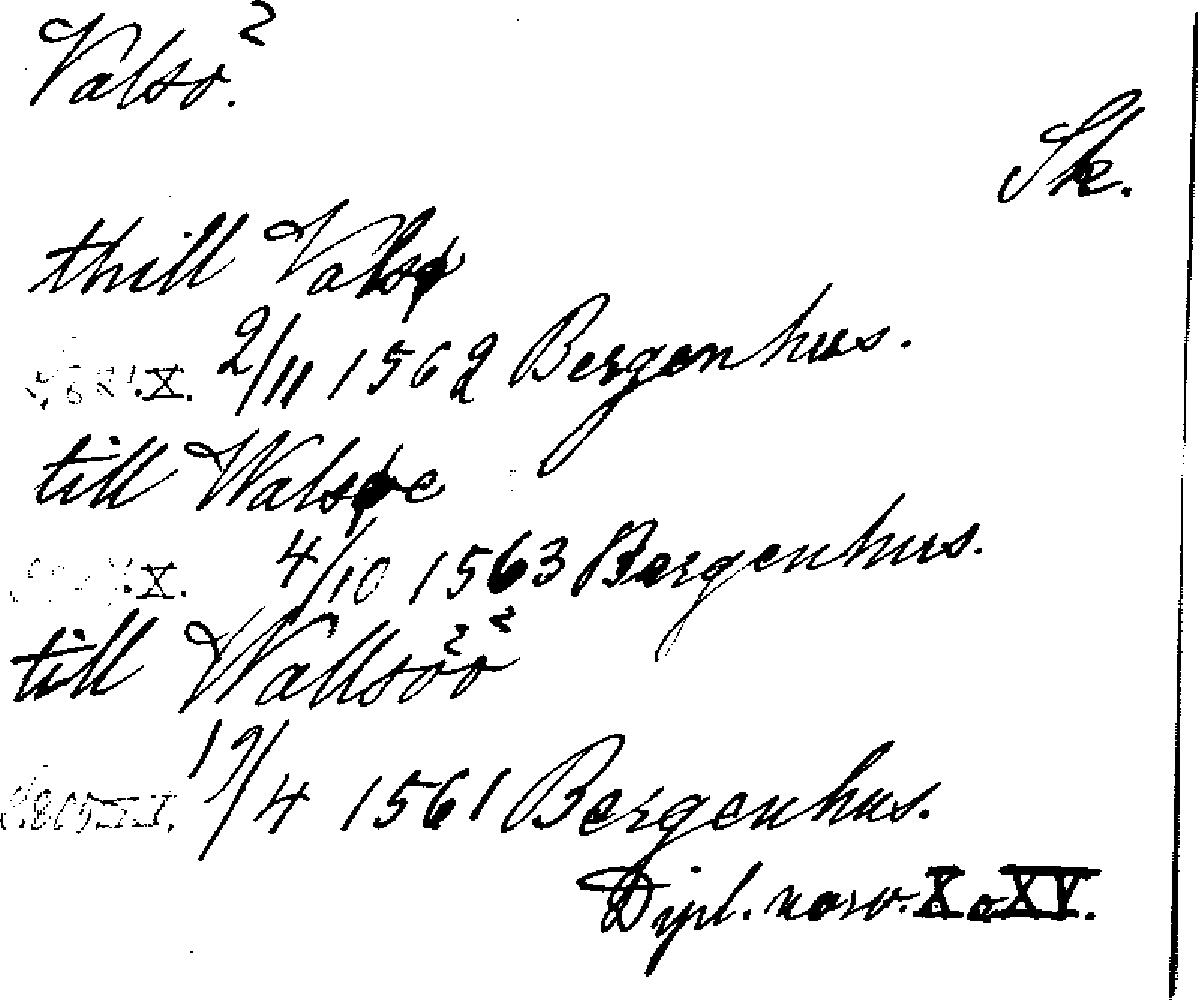 Valsö.
Sk.
thill Valsø
X. 2/11 1562 Bergenhus.
till Walsøe
X. 4/10 1563 Bergenhus.
till Wallsöö
19/4 1561 Bergenhus.
Dipl. norv. X o XV.